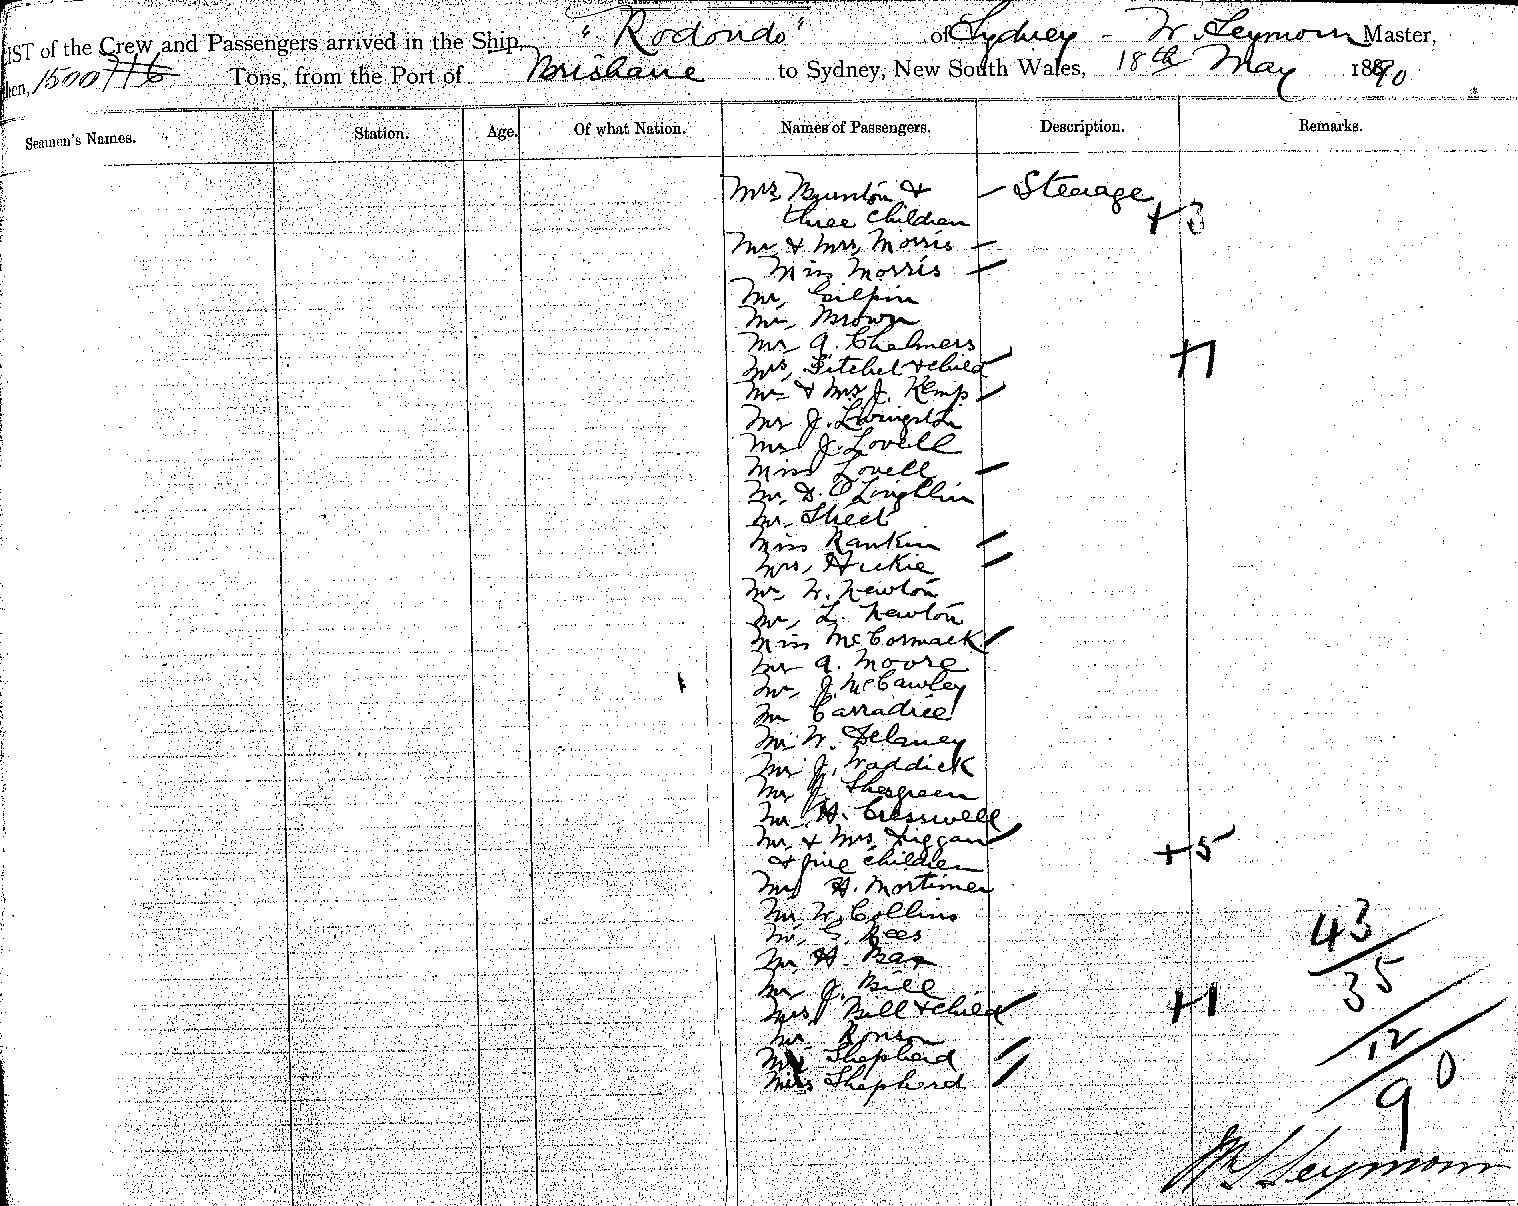 LIST of the Crew and Passengers arrived in the Ship, "Rodondo" of Sydney - W. Seymour Master,
1500 Tons, from the Port of Brisbane to Sydney, New South Wales, 18th May 1890
Seamen's Names. Station. Age. Of what Nation. Names of Passengers. Description. Remarks.
Mrs Brunton & - Steerage
three children +3
Mr & Mrs Morris -
Miss Morris -
Mr Gilpin
Mr Brown
Mr A. Chalmers
Mrs Fitchet & child +1
Mr & Mrs J. Kemp
Mr J. Livingston
Mr J. Lovell
Miss Lovell
Mr D. O'Loughlin
Mr Street
Miss Rankin
Mrs Hickie
Mr W. Newton
Mr L. Newton
Miss McCormack
Mr A. Moore
Mr J. McCawley
Mr Carradice
Mr W. Delaney
Mr J. Waddick
Mr J. Shegreen
Mr H. Cresswell
Mr & Mrs Diggan
& five children +5
Mr H. Mortimer
Mr W. Collins
Mr G. Rees
Mr H. Bax
Mr J. Bill
Mrs Bill & child +1
Mr Ronson
Shepherd
Miss Shepherd
43
35
12
90
Wm S Seymour